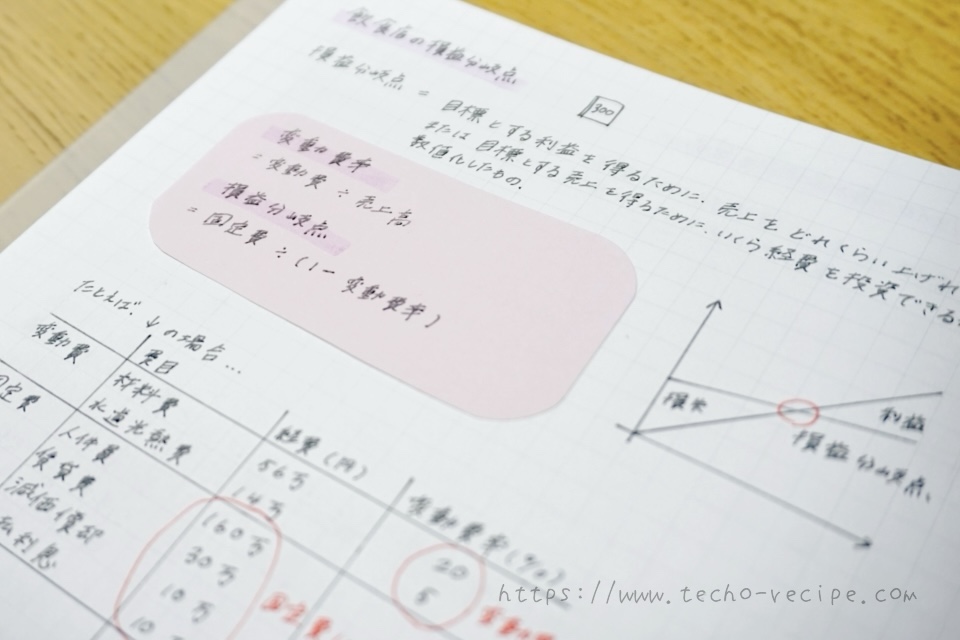 飲食店の損益分岐点
300
損益分岐点 =
目標とする利益を得るために、売上をどれくらい上げれ
または目標とする売上を得るために、いくら経費を投資できる
数値化したもの。
変動費率
= 変動費 ÷ 売上高
損益分岐点
= 固定費 ÷ (1 - 変動費率)
損失
利益
損益分岐点、
たとえば、↓の場合…
費目
経費(円)
変動費率(%)
変動費
材料費
56万
20
水道光熱費
14万
5
固定費
人件費
160万
賃貸費
30万
減価償却
10万
払利息
10
固定費
https://www.techo-recipe.com